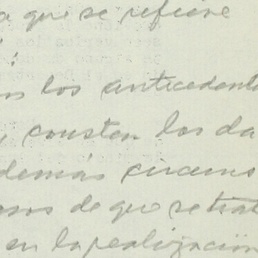 a que se refiere
en los antecedente
, consten los da
demás circuns
osos de que se trat
en la realización